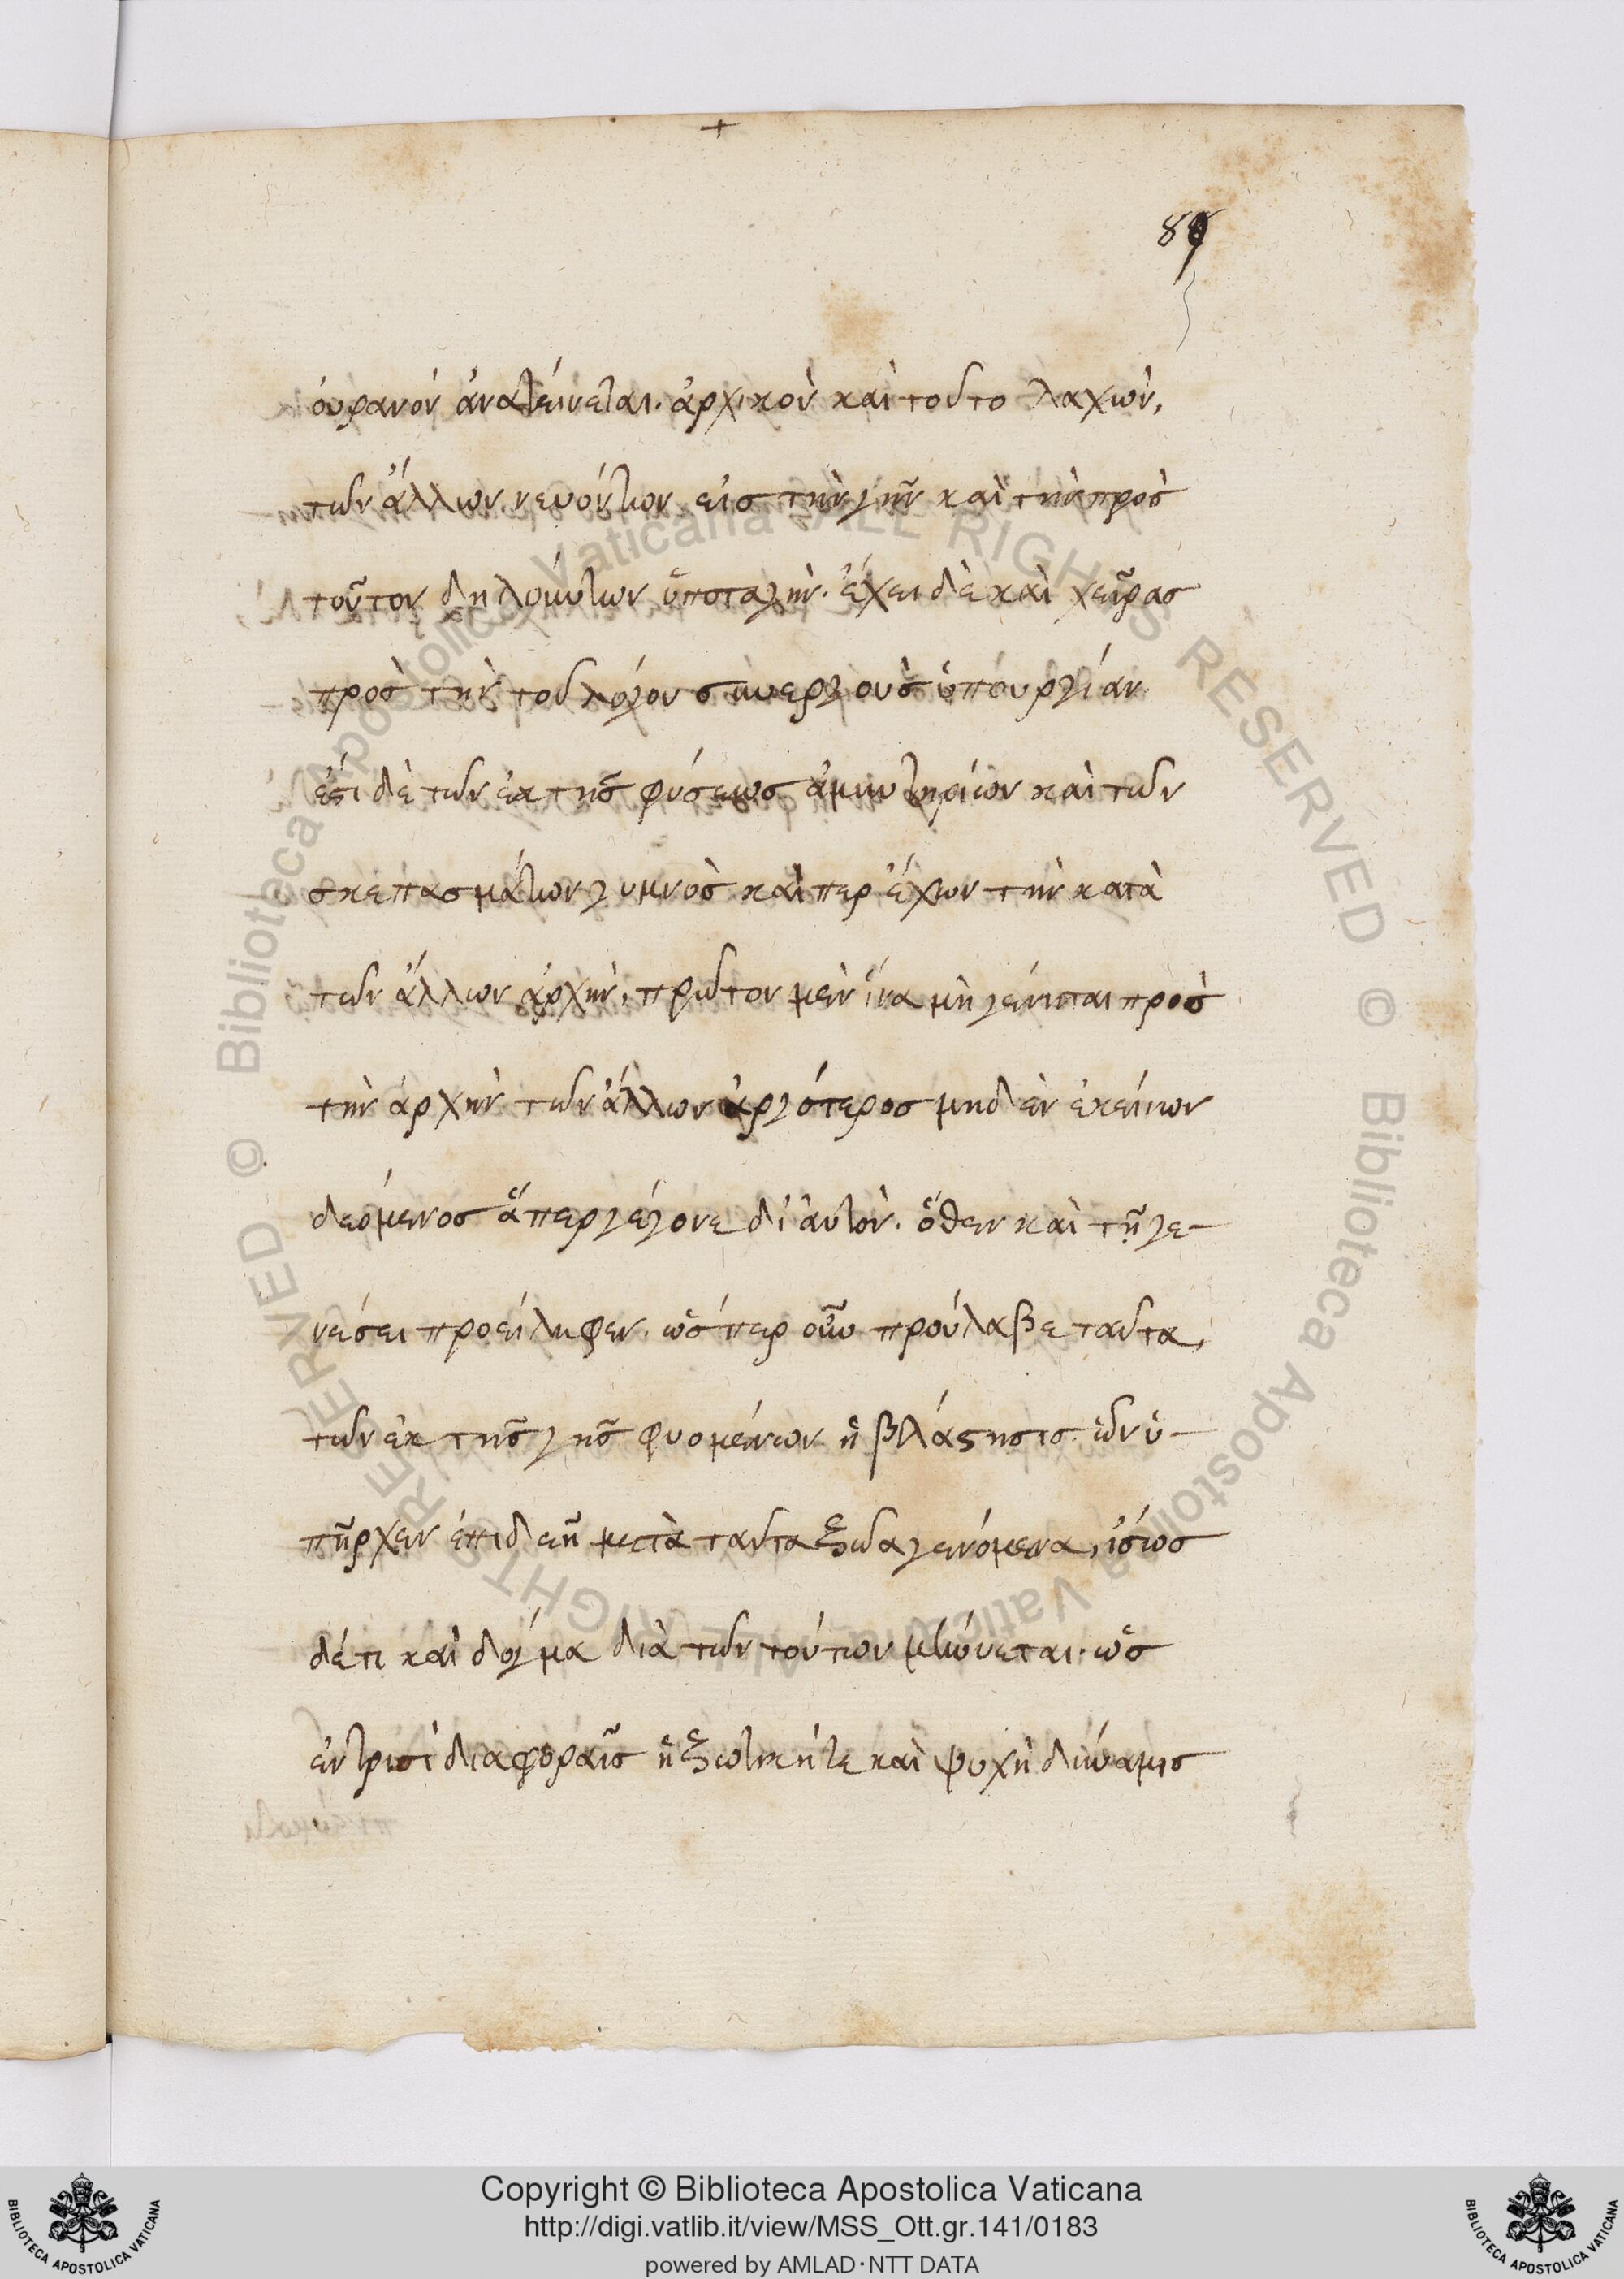 +
89
οὐρανὸν ἀνατείνεται. ἀρχικὸν καὶ τοῦτο λαχὼν,
τῶν ἄλλων νευόντων εἰς τὴν γῆν καὶ τὴν πρὸς
τοῦτον δηλούντων ὑποταγήν. ἔχει δὲ καὶ χεῖρας
πρὸς τὴν τοῦ λόγου συνεργοὺς ὑπουργίαν
ἔστι δὲ τῶν ἐκ τῆς φύσεως ἀμυντηρίων καὶ τῶν
σκεπασμάτων γυμνὸς καίπερ ἔχων τὴν κατὰ
τῶν ἄλλων ἀρχὴν, πρῶτον μὲν ἵνα μὴ γένηται πρὸς
τὴν ἀρχὴν τῶν ἄλλων ἀργότερος μηδὲν ἐκείνων
δεόμενος ἅπερ γέγονε δι' αὐτόν. ὅθεν καὶ τῇ γε-
νέσει προείληφεν. ὥσπερ οὖν προύλαβε ταῦτα,
τῶν ἐκ τῆς γῆς φυομένων ἡ βλάστησις. ὧν ὑ-
πῆρχεν ἐπιδεῆ μετὰ ταῦτα ζῶα γενόμενα, ἴσως
δέ τι καὶ δόγμα διὰ τῶν τούτων μηνύεται. ὡς
ἐν τρισὶ διαφοραῖς ἡ ζωτική τε καὶ ψυχὴ δύναμις
Copyright © Biblioteca Apostolica Vaticana
http://digi.vatlib.it/view/MSS_Ott.gr.141/0183
powered by AMLAD·NTT DATA
BIBLIOTECA APOSTOLICA VATICANA
BIBLIOTECA APOSTOLICA VATICANA
© Biblioteca Apostolica Vaticana ALL RIGHTS RESERVED © Biblioteca Apostolica Vaticana ALL RIGHTS RESERVED